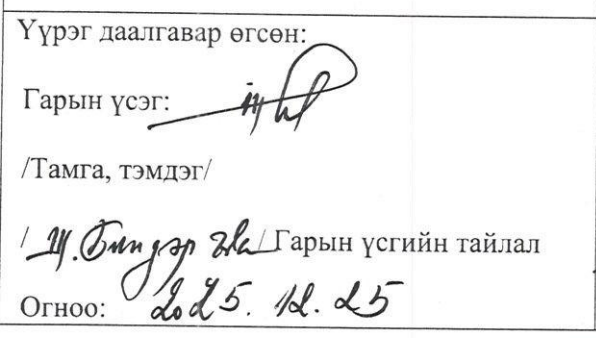 Үүрэг даалгавар өгсөн:
Гарын үсэг:
/Тамга, тэмдэг/
/ / Гарын үсгийн тайлал
Огноо: 2025. 12. 25